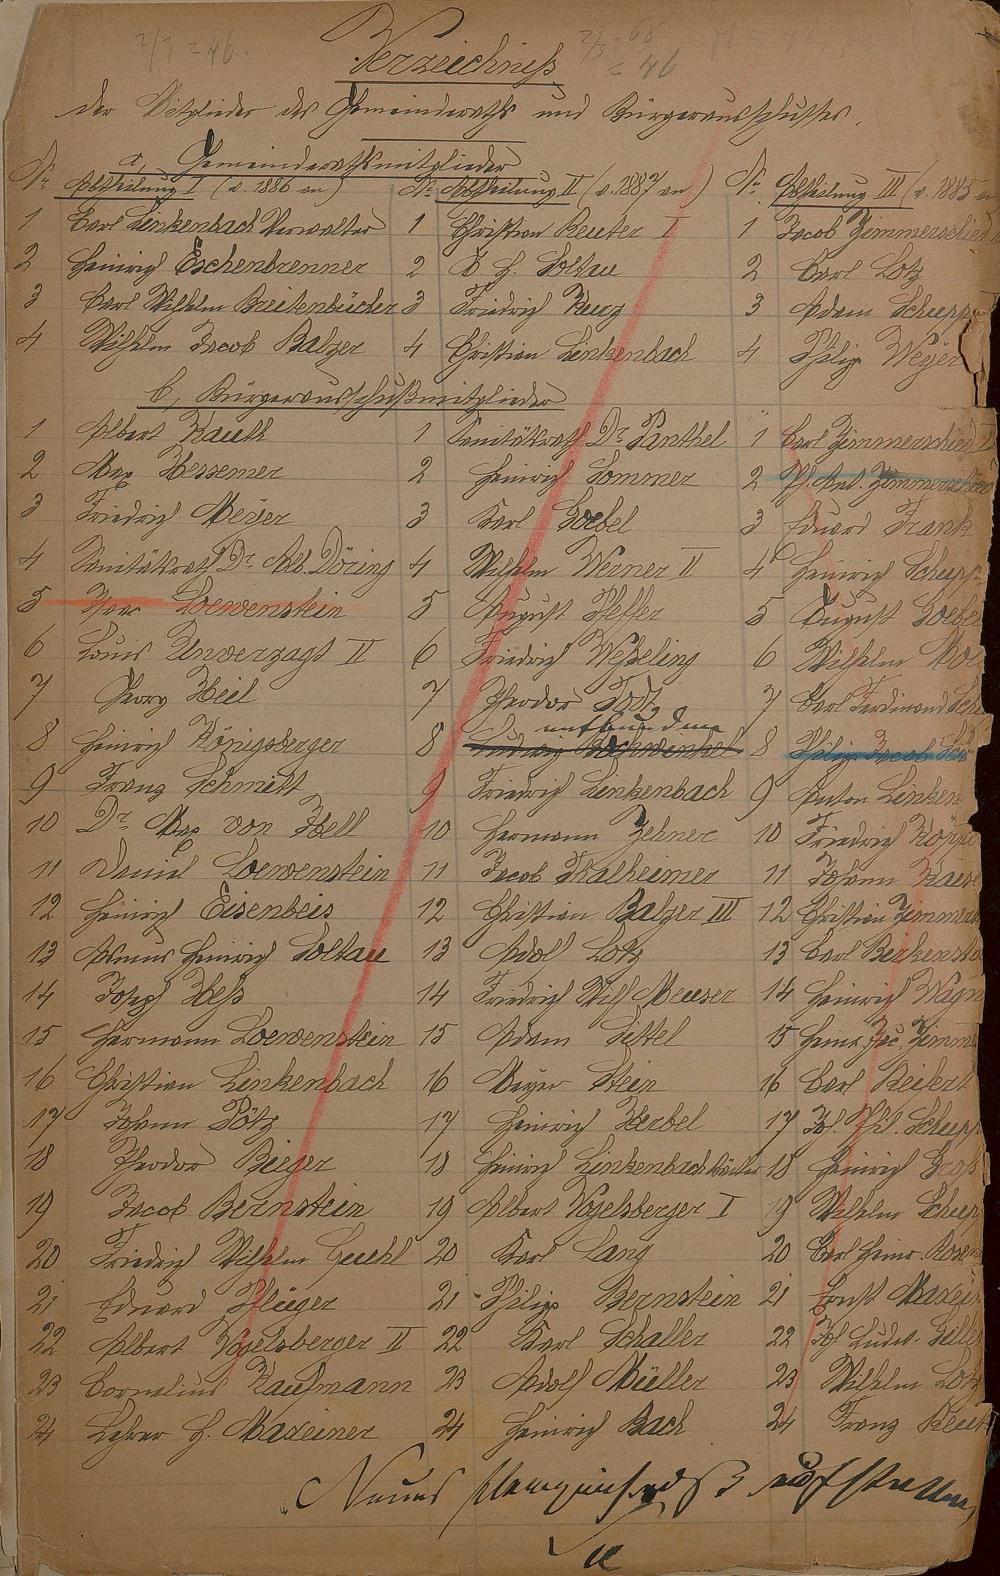 2/3 = 46. 2/3 = 68
= 46
Verzeichniß
der Mitglieder des Gemeinderaths und Bürgerausschusses.
a, Gemeinderathsmitglieder
Nr. Abtheilung I (v. 1886 an) Nr. Abtheilung II (v. 1887 an) Nr. Abtheilung III (v. 1885 an
1 Carl Linkenbach Verwalter 1 Christian Reuter I 1 Jacob Zimmerschied
2 Heinrich Eschenbrenner 2 A. H. Soltau 2 Carl Lotz
3 Carl Wilhelm Breitenbücher 3 Friedrich Kurz 3 Adam Schupp
4 Wilhelm Jacob Balzer 4 Christian Linkenbach 4 Philip Weyer
b, Bürgerausschußmitglieder
1 Albert Kauth 1 Sanitätsrath Dr. Panthel 1 Carl Zimmerschied
2 Max Hessemer 2 Heinrich Sommer 2 Ph. Ant. Zimmersch
3 Friedrich Meyer 3 Karl Goebel 3 Eduard Frank
4 Sanitätsrath Dr. Alb. Döring 4 Wilhelm Werner II 4 Heinrich Schupp
5 Isaac Loewenstein 5 August Heffer 5 August Goebel
6 Louis Unverzagt II 6 Friedrich Weßeling 6 Wilhelm
7 Georg Heil 7 Theodor Todt 7 Carl Ferdinand Sch
8 Heinrich Königsberger 8 Ludwig Bockwinkel 8 Philip Jacob Sch
9 Franz Schmitt 9 Friedrich Linkenbach 9 Anton Linken
10 Dr. Max von Ibell 10 Hermann Zehner 10 Friedrich Köpp
11 Daniel Loewenstein 11 Jacob Thalheimer 11 Johann Kais
12 Heinrich Eisenbeis 12 Christian Balzer III 12 Christian Zimmers
13 Asmus Heinrich Soltau 13 Adolf Lotz 13 Carl Berkensto
14 Joseph Heß 14 Friedrich Wilh. Meuser 14 Heinrich Wagn
15 Hermann Loewenstein 15 Adam Sittel 15 Heinr. Jac. Zimme
16 Christian Linkenbach 16 Meyer Stein 16 Carl Reifert
17 Johann Pötz 17 Heinrich Herbel 17 Joh. Phil. Schupp
18 Theodor Bieger 18 Heinrich Linkenbach 18 Heinrich Groß
19 Jacob Bernstein 19 Albert Vogelsberger I 19 Wilhelm Schup
20 Friedrich Wilhelm Heuhl 20 Karl Lang 20 Carl Heinr. Rosen
21 Eduard Pflüger 21 Philip Bernstein 21 Ernst Maxein
22 Albert Vogelsberger II 22 Karl Schaller 22 Joh. Ludw. Gille
23 Cornelius Kaufmann 23 Adolf Müller 23 Wilhelm Lotz
24 Lehrer H. Maxeiner 24 Heinrich Bach 24 Franz Reut
Neues aufstellen